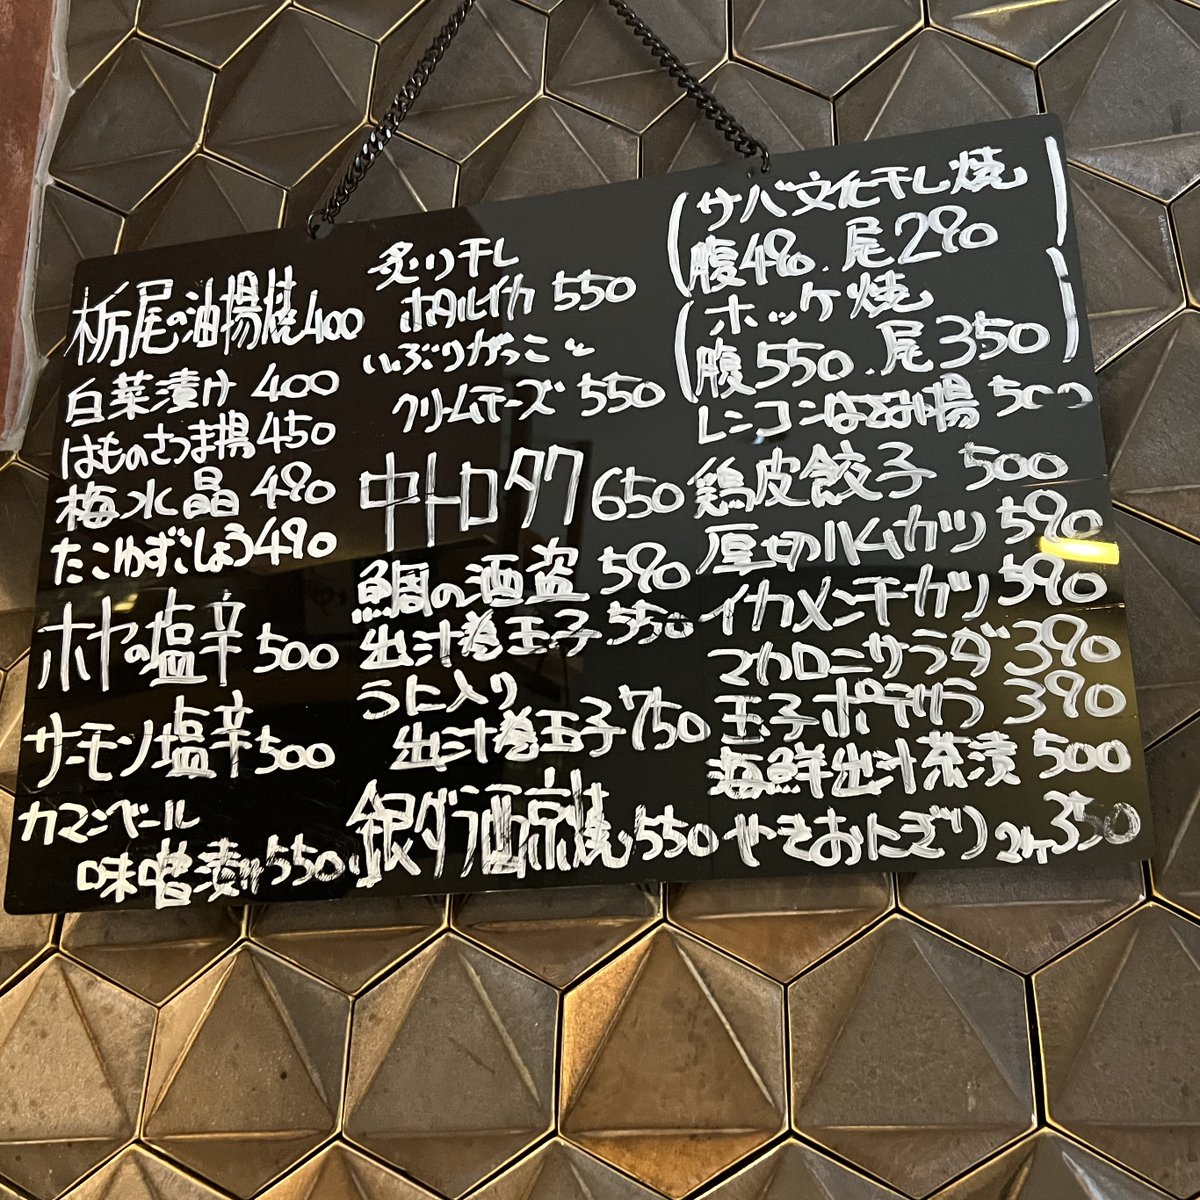 栃尾の油揚焼400
白菜漬け 400
はものさつま揚450
梅水晶 490
たこゆずごしょう490
ホヤの塩辛500
サーモン塩辛500
カマンベール
味噌漬け550
炙り干し
ホタルイカ 550
いぶりがっこと
クリームチーズ 550
中トロタク 650
鯛の酒盗 590
出汁巻玉子 550
うに入り
出汁巻玉子 750
銀ダラ西京焼 550
(サバ文化干し焼
腹490. 尾290)
(ホッケ焼
腹550. 尾350)
レンコンはさみ揚 500
鶏皮餃子 500
厚切ハムカツ 590
イカメンチカツ 590
マカロニサラダ 390
玉子ポテサラ 390
海鮮出汁茶漬 500
やきおにぎり 2ケ350